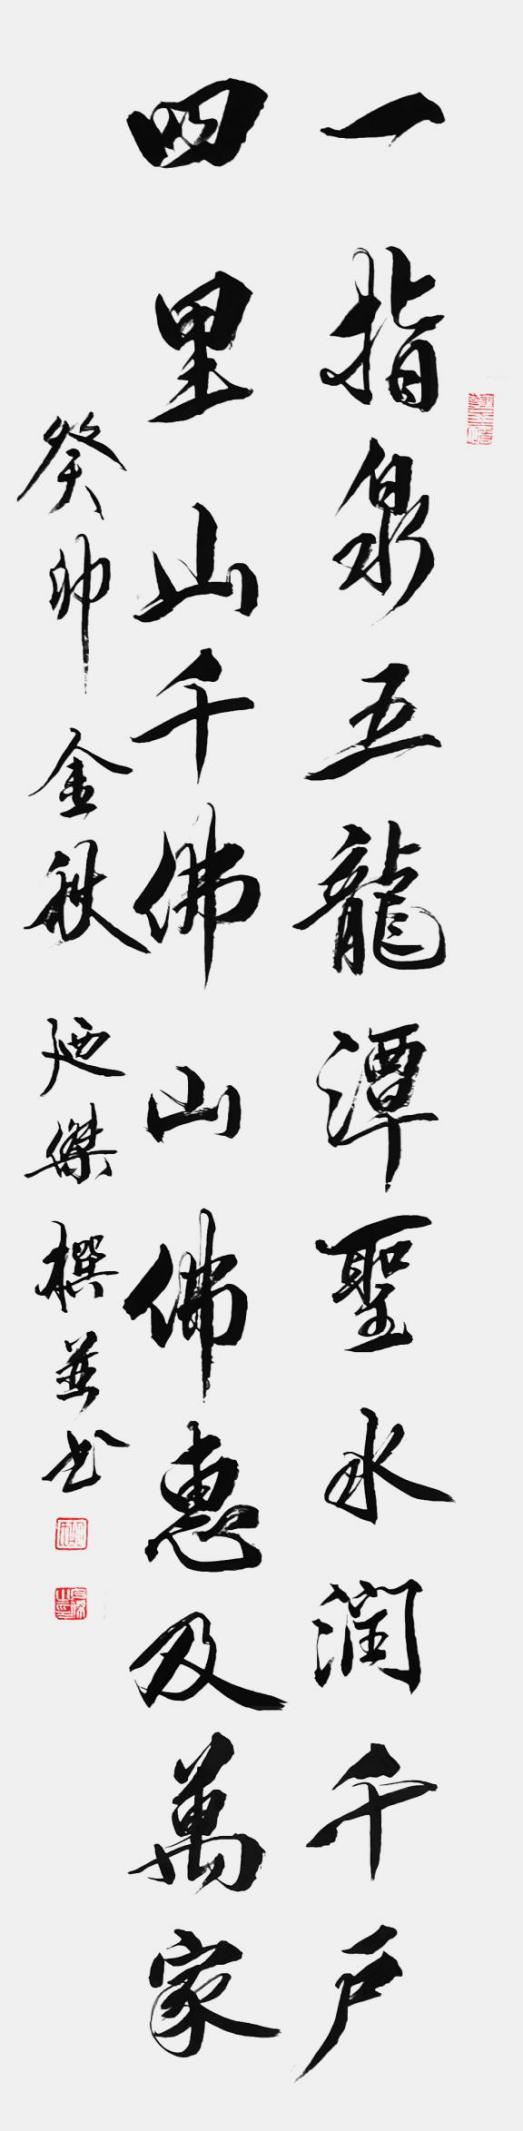 一指泉五龍潭聖水润千户
四里山千佛山佛惠及萬家
癸卯金秋廼傑撰並书